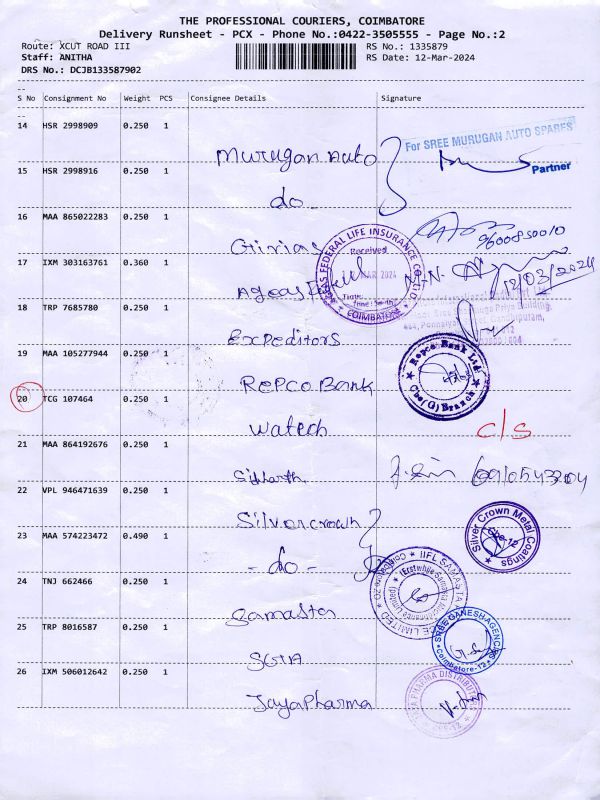 THE PROFESSIONAL COURIERS, COIMBATORE
Delivery Runsheet - PCX - Phone No.:0422-3505555 - Page No.:2
Route: XCUT ROAD III RS No.: 1335879
Staff: ANITHA RS Date: 12-Mar-2024
DRS No.: DCJB133587902
S No Consignment No Weight PCS Consignee Details Signature
14 HSR 2998909 0.250 1
Murugan Auto
For SREE MURUGAN AUTO SPARES
Partner
15 HSR 2998916 0.250 1
do
16 MAA 865022283 0.250 1
9600850010
17 IXM 303163761 0.360 1
FEDERAL LIFE INSURANCE CO LTD
Received
MAR 2024
COIMBATORE
12/03/2024
18 TRP 7685780 0.250 1
Expeditors
19 MAA 105277944 0.250 1
Repco Bank
Repco Bank Ltd
Cbe(G) Branch
20 TCG 107464 0.250 1
watech
c/s
21 MAA 864192676 0.250 1
Siddharth
22 VPL 946471639 0.250 1
Silvercrown
Silver Crown Metal Coatings
Cbe-12
23 MAA 574223472 0.490 1
- do -
24 TNJ 662466 0.250 1
IIFL SAMASTA
FINANCE LIMITED
Coimbatore
25 TRP 8016587 0.250 1
SGA
SREE GANESH AGENCIES
Coimbatore-12
26 IXM 506012642 0.250 1
Jaya Pharma
JAYA PHARMA DISTRIBUTORS